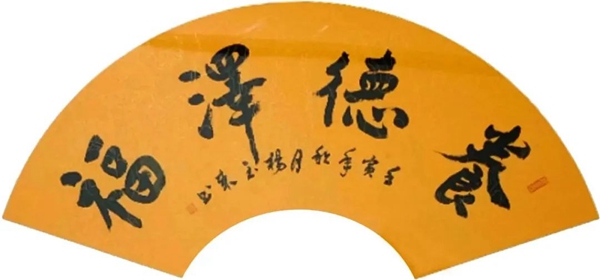 養德澤福
壬寅年秋月楊玉東书